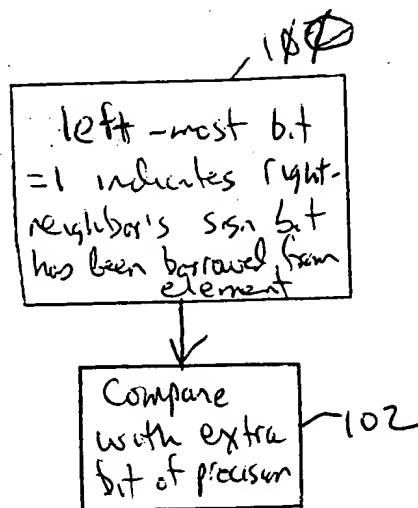 100
left-most bit
=1 indicates right-
neighbor's sign bit
has been borrowed from
element
Compare
with extra
bit of precision
102